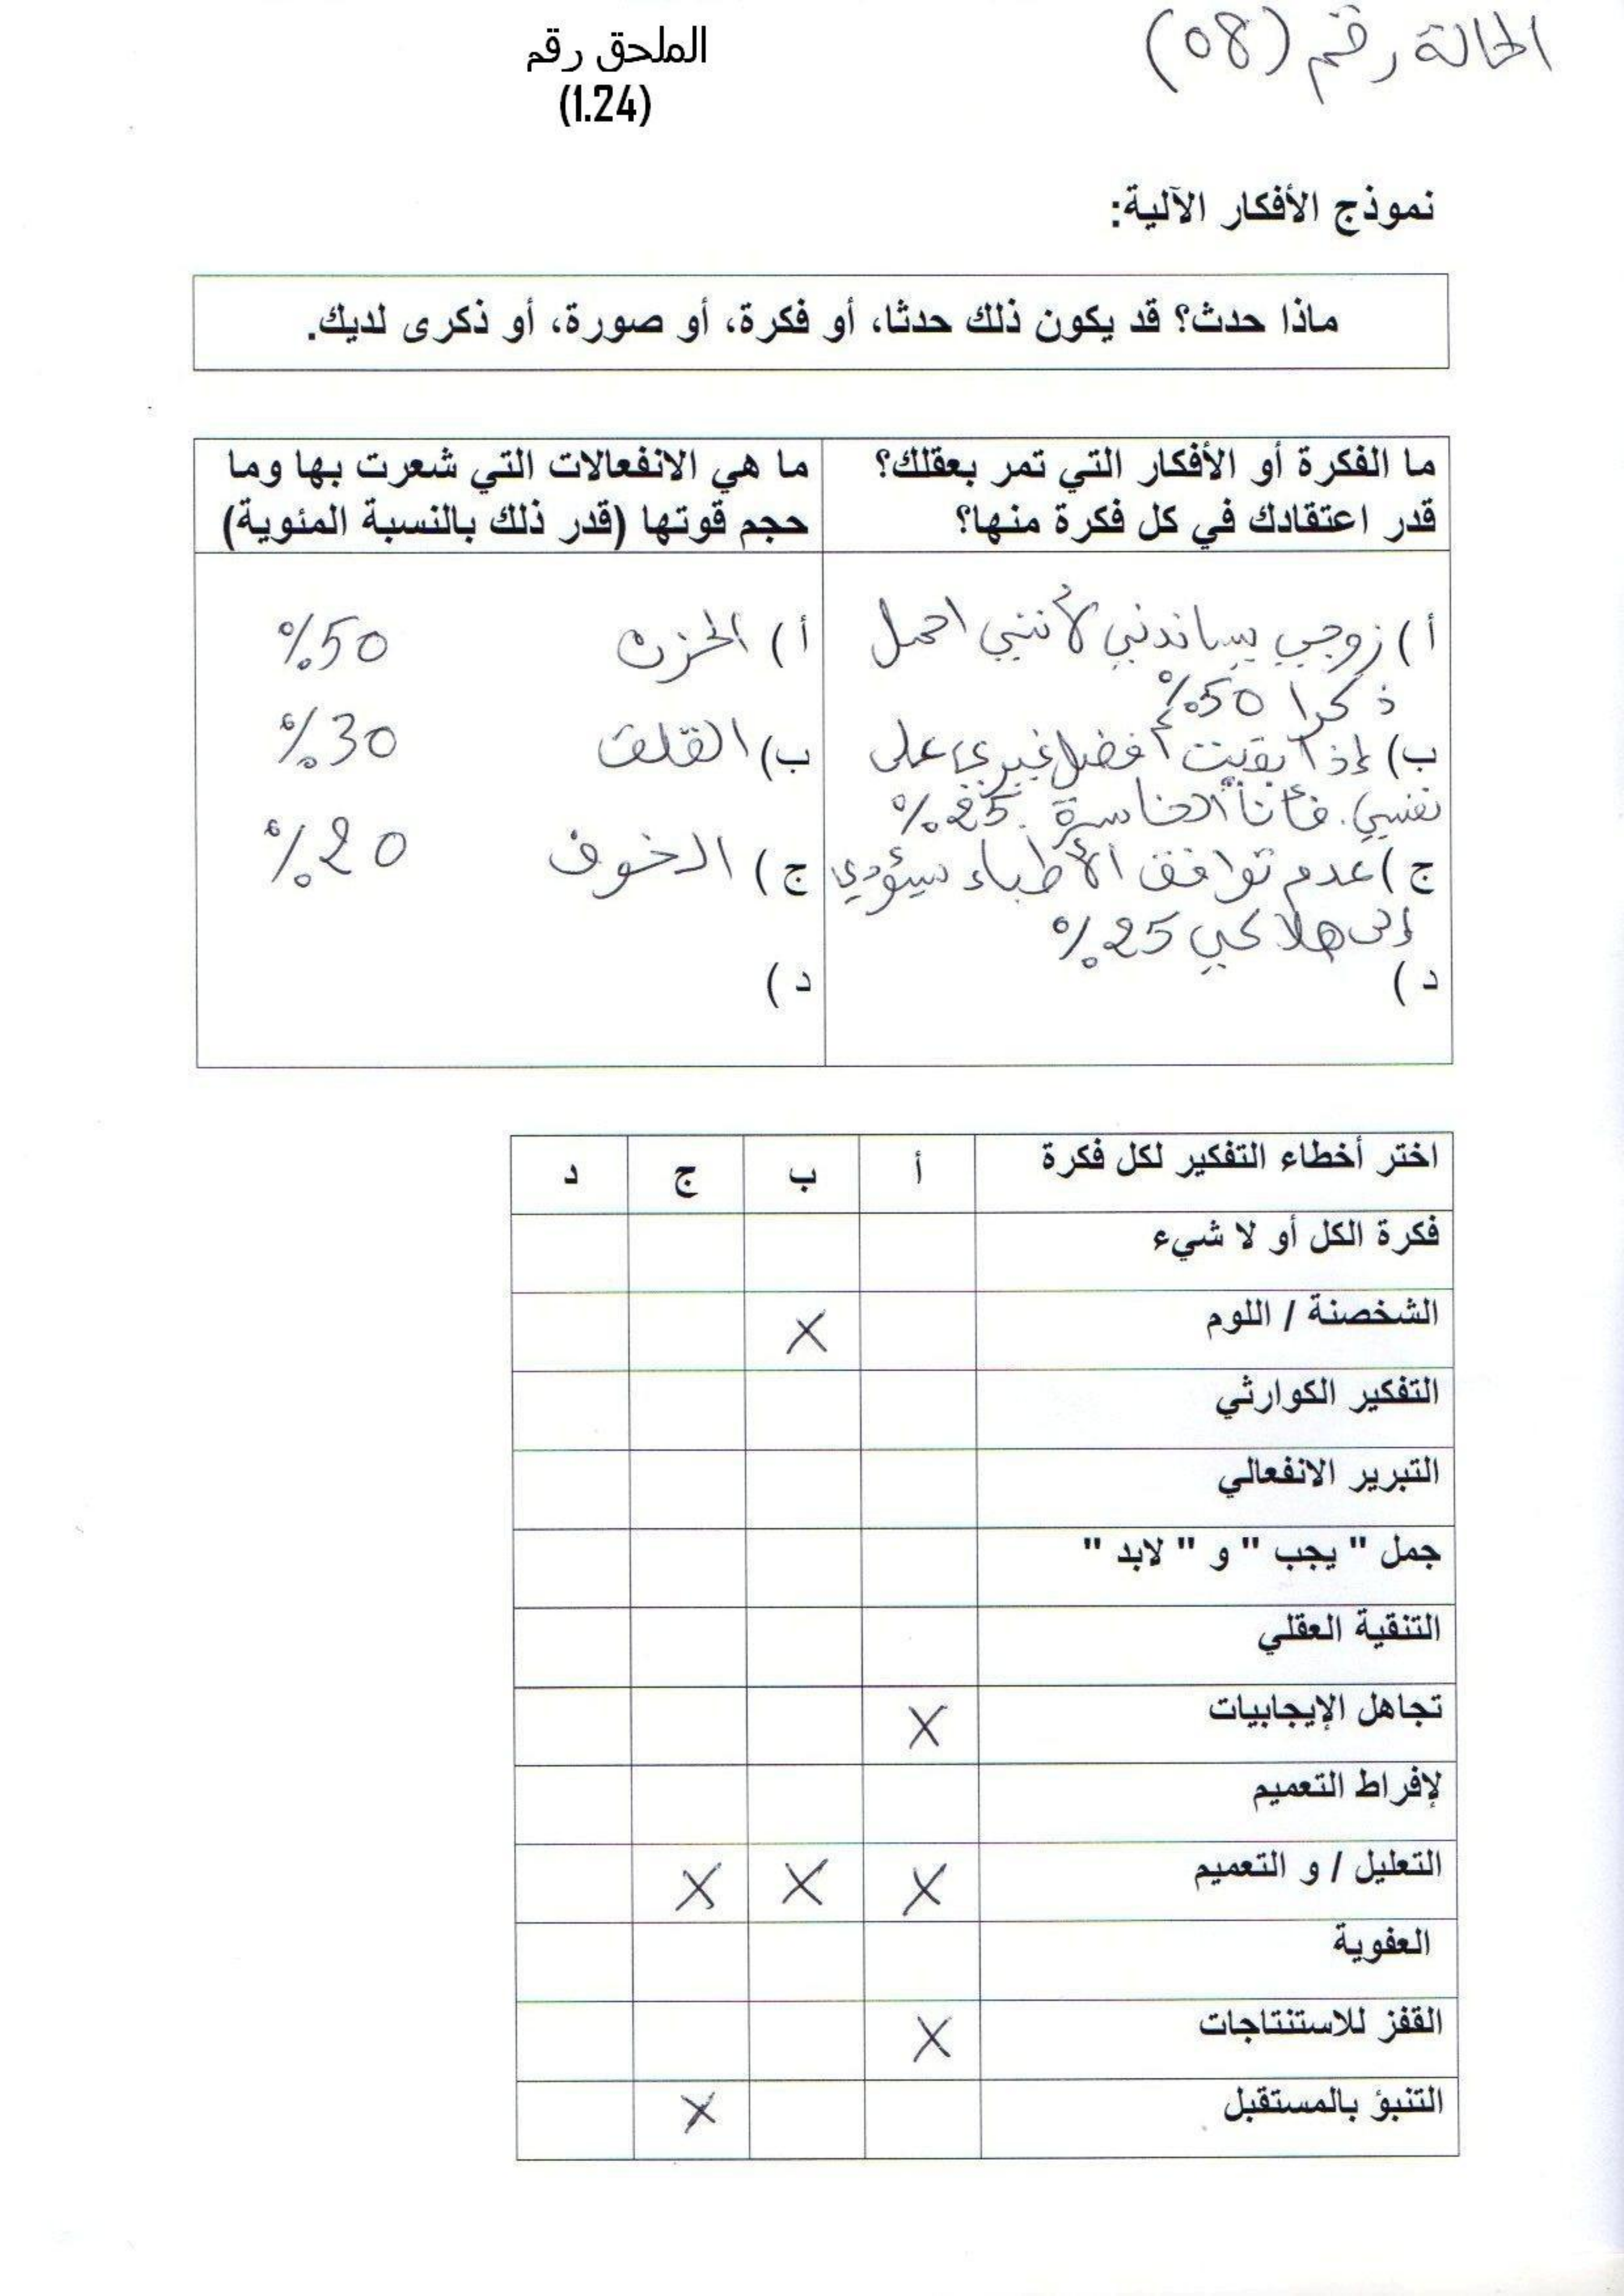 الحالة رقم (08)
الملحق رقم
(1.24)
نموذج الأفكار الآلية:
ماذا حدث؟ قد يكون ذلك حدثا، أو فكرة، أو صورة، أو ذكرى لديك.
ما الفكرة أو الأفكار التي تمر بعقلك؟
قدر اعتقادك في كل فكرة منها؟
ما هي الانفعالات التي شعرت بها وما
حجم قوتها (قدر ذلك بالنسبة المئوية)
أ) زوجي يساندني لأنني احمل
ذكرا 50%
ب) إذا بقيت أفضل غيري على
نفسي. فأنا الخاسرة. 25%
ج) عدم توافق الأطباء سيؤدي
إلى هلاكي 25%
د)
أ) الحزن 50%
ب) القلق 30%
ج) الخوف 20%
د)
اختر أخطاء التفكير لكل فكرة أ ب ج د
فكرة الكل أو لا شيء
الشخصنة / اللوم X
التفكير الكوارثي
التبرير الانفعالي
جمل " يجب " و " لابد "
التنقية العقلي
تجاهل الإيجابيات X
لإفراط التعميم
التعليل / و التعميم X X X
العفوية
القفز للاستنتاجات X
التنبؤ بالمستقبل X